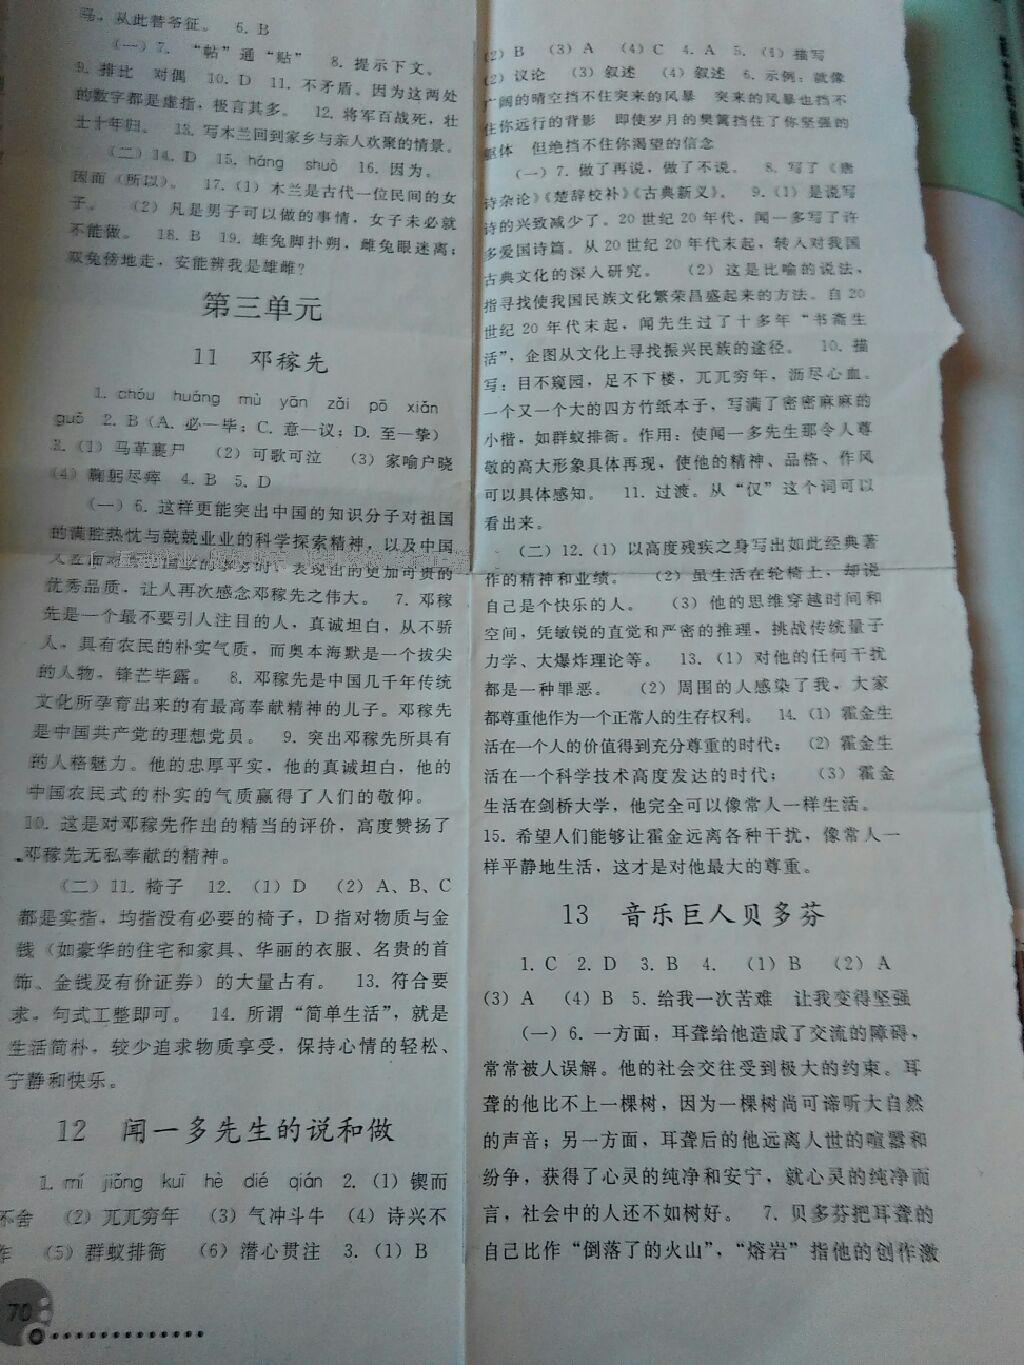 从此替爷征。 6. B
(一)7. “帖”通“贴” 8. 提示下文。
9. 排比 对偶 10. D 11. 不矛盾。因为这两处
的数字都是虚指，极言其多。 12. 将军百战死，壮
士十年归。 13. 写木兰回到家乡与亲人欢聚的情景。
(二)14. D 15. háng shuò 16. 因为。
因而(所以)。 17. (1) 木兰是古代一位民间的女
子。 (2) 凡是男子可以做的事情，女子未必就
不能做。 18. B 19. 雄兔脚扑朔，雌兔眼迷离；
双兔傍地走，安能辨我是雄雌？
第三单元
11 邓稼先
1. chóu huáng mù yān zǎi pō xiǎn
guō 2. B (A. 必—毕；C. 意—议；D. 至—挚)
3. (1) 马革裹尸 (2) 可歌可泣 (3) 家喻户晓
(4) 鞠躬尽瘁 4. B 5. D
(一)6. 这样更能突出中国的知识分子对祖国
的满腔热忱与兢兢业业的科学探索精神，以及中国
表现出的更加可贵的
优秀品质，让人再次感念邓稼先之伟大。 7. 邓稼
先是一个最不要引人注目的人，真诚坦白，从不骄
人，具有农民的朴实气质，而奥本海默是一个拔尖
的人物，锋芒毕露。 8. 邓稼先是中国几千年传统
文化所孕育出来的有最高奉献精神的儿子。邓稼先
是中国共产党的理想党员。 9. 突出邓稼先所具有
的人格魅力。他的忠厚平实，他的真诚坦白，他的
中国农民式的朴实的气质赢得了人们的敬仰。
10. 这是对邓稼先作出的精当的评价，高度赞扬了
邓稼先无私奉献的精神。
(二)11. 椅子 12. (1) D (2) A、B、C
都是实指，均指没有必要的椅子，D 指对物质与金
钱（如豪华的住宅和家具、华丽的衣服、名贵的首
饰、金钱及有价证券）的大量占有。 13. 符合要
求，句式工整即可。 14. 所谓“简单生活”，就是
生活简朴，较少追求物质享受，保持心情的轻松、
宁静和快乐。
12 闻一多先生的说和做
1. mí jiǒng kuī hè dié qián 2. (1) 锲而
不舍 (2) 兀兀穷年 (3) 气冲斗牛 (4) 诗兴不
作 (5) 群蚁排衙 (6) 潜心贯注 3. (1) B
70
(2) B (3) A (4) C 4. A 5. (1) 描写
(2) 议论 (3) 叙述 (4) 叙述 6. 示例：就像
广阔的晴空挡不住突来的风暴 突来的风暴也挡不
住你远行的背影 即使岁月的樊篱挡住了你坚强的
躯体 但绝挡不住你渴望的信念
(一)7. 做了再说，做了不说。 8. 写了《唐
诗杂论》《楚辞校补》《古典新义》。 9. (1) 是说写
诗的兴致减少了。20 世纪 20 年代，闻一多写了许
多爱国诗篇。从 20 世纪 20 年代末起，转入对我国
古典文化的深入研究。 (2) 这是比喻的说法，
指寻找使我国民族文化繁荣昌盛起来的方法。自 20
世纪 20 年代末起，闻先生过了十多年“书斋生
活”，企图从文化上寻找振兴民族的途径。 10. 描
写：目不窥园，足不下楼，兀兀穷年，沥尽心血。
一个又一个大的四方竹纸本子，写满了密密麻麻的
小楷，如群蚁排衙。作用：使闻一多先生那令人尊
敬的高大形象具体再现，使他的精神、品格、作风
可以具体感知。 11. 过渡。从“仅”这个词可以
看出来。
(二)12. (1) 以高度残疾之身写出如此经典著
作的精神和业绩。 (2) 虽生活在轮椅上，却说
自己是个快乐的人。 (3) 他的思维穿越时间和
空间，凭敏锐的直觉和严密的推理，挑战传统量子
力学、大爆炸理论等。 13. (1) 对他的任何干扰
都是一种罪恶。 (2) 周围的人感染了我，大家
都尊重他作为一个正常人的生存权利。 14. (1) 霍金生
活在一个人的价值得到充分尊重的时代； (2) 霍金生
活在一个科学技术高度发达的时代； (3) 霍金
生活在剑桥大学，他完全可以像常人一样生活。
15. 希望人们能够让霍金远离各种干扰，像常人一
样平静地生活，这才是对他最大的尊重。
13 音乐巨人贝多芬
1. C 2. D 3. B 4. (1) B (2) A
(3) A (4) B 5. 给我一次苦难 让我变得坚强
(一)6. 一方面，耳聋给他造成了交流的障碍，
常常被人误解。他的社会交往受到极大的约束。耳
聋的他比不上一棵树，因为一棵树尚可谛听大自然
的声音；另一方面，耳聋后的他远离人世的喧嚣和
纷争，获得了心灵的纯净和安宁，就心灵的纯净而
言，社会中的人还不如树好。 7. 贝多芬把耳聋的
自己比作“倒落了的火山”，“熔岩”指他的创作激